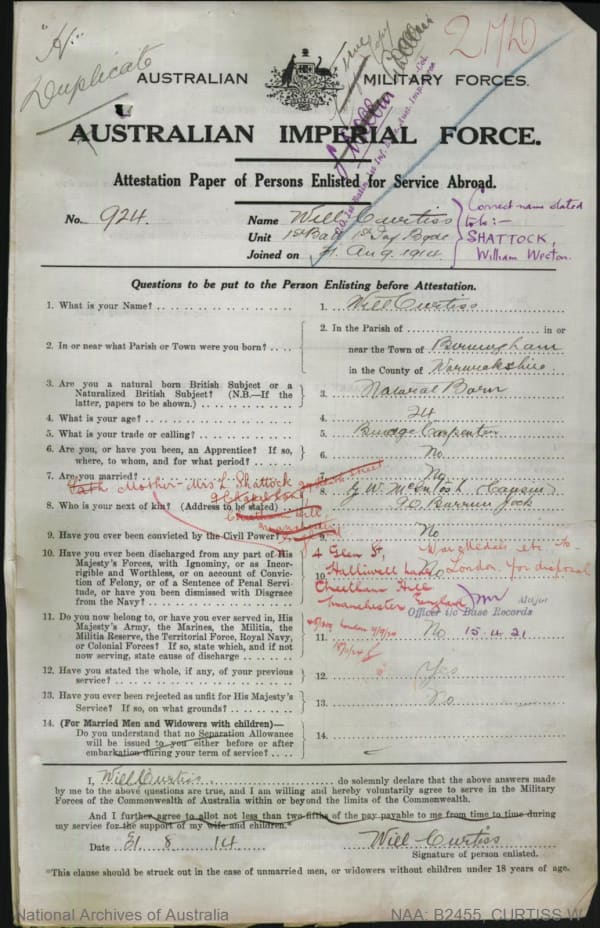 "H"
Duplicate
2170
AUSTRALIAN MILITARY FORCES.
AUSTRALIAN IMPERIAL FORCE.
Attestation Paper of Persons Enlisted for Service Abroad.
No. 924.
Name Will Curtiss
Unit 1st Batt 1st Inf Bgde
Joined on 31 Aug 1914
Correct name stated
to be:-
SHATTOCK,
William Weston.
Questions to be put to the Person Enlisting before Attestation.
1. What is your Name?
1. Will Curtiss
2. In or near what Parish or Town were you born?
2. In the Parish of in or
near the Town of Birmingham
in the County of Warwickshire
3. Are you a natural born British Subject or a
Naturalized British Subject? (N.B.—If the
latter, papers to be shown.)
3. Natural Born
4. What is your age?
4. 24
5. What is your trade or calling?
5. Carpenter
6. Are you, or have you been, an Apprentice? If so,
where, to whom, and for what period?
6. No
7. Are you married?
7. No
Mother- Mrs L. Shattock
8. Who is your next of kin? (Address to be stated)
8. G. W. McIntosh (Cousin)
Cheetham Hill
9. Have you ever been convicted by the Civil Power?
9. No
10. Have you ever been discharged from any part of His
Majesty's Forces, with Ignominy, or as Incor-
rigible and Worthless, or on account of Convic-
tion of Felony, or of a Sentence of Penal Servi-
tude, or have you been dismissed with Disgrace
from the Navy?
10. No
4 Glen St,
Halliwell Lane
Cheetham Hill
Manchester England
War Medals etc to
London for disposal
Major
Officer i/c Base Records
15.4.21
11. Do you now belong to, or have you ever served in, His
Majesty's Army, the Marines, the Militia, the
Militia Reserve, the Territorial Force, Royal Navy,
or Colonial Forces? If so, state which, and if not
now serving, state cause of discharge
11. No
12. Have you stated the whole, if any, of your previous
service?
12. Yes
13. Have you ever been rejected as unfit for His Majesty's
Service? If so, on what grounds?
13. No
14. (For Married Men and Widowers with children)—
Do you understand that no Separation Allowance
will be issued to you either before or after
embarkation during your term of service?
14.
I, Will Curtiss do solemnly declare that the above answers made
by me to the above questions are true, and I am willing and hereby voluntarily agree to serve in the Military
Forces of the Commonwealth of Australia within or beyond the limits of the Commonwealth.
And I further agree to allot not less than two-fifths of the pay payable to me from time to time during
my service for the support of my wife and children.*
Date 31 8 14
Will Curtiss
Signature of person enlisted.
*This clause should be struck out in the case of unmarried men, or widowers without children under 18 years of age.
National Archives of Australia
NAA: B2455, CURTISS W